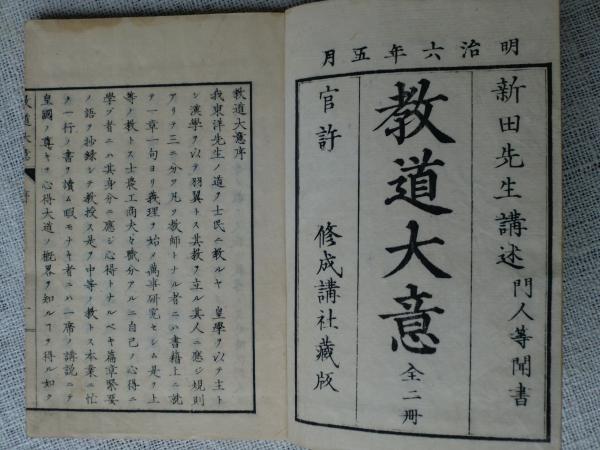 明治六年五月
新田先生講述 門人等聞書
教道大意 全二冊
官許 修成講社藏版
教道大意序
我東洋先生ノ道ヲ士民ニ教ルヤ 皇學ヲ以テ主ト
シ漢學ヲ以テ羽翼トス其教ヲ立ル其人ニ應シ規則
アリテ三ニ分ツ凡ソ教師トナル者ニハ書籍上ニ就
テ一章一句ヨリ義理ヲ始メ萬事研究セシム是ヲ上
等ノ教トス士農工商夫々職分アル二自己ノ心得ニ
學フ者ニハ其身分ニ應シ心得トナルベキ篇章緊要
ノ語ヲ抄録シテ教授ス是ヲ中等ノ教トス本業ニ忙
ヲ一行ノ書ヲ讀ム暇モナキ者ニハ一席ノ講説ニテ
皇國ノ尊キヲ心得大道ノ概畧ヲ知ルヿヲ得ル如ク
教道大意 序